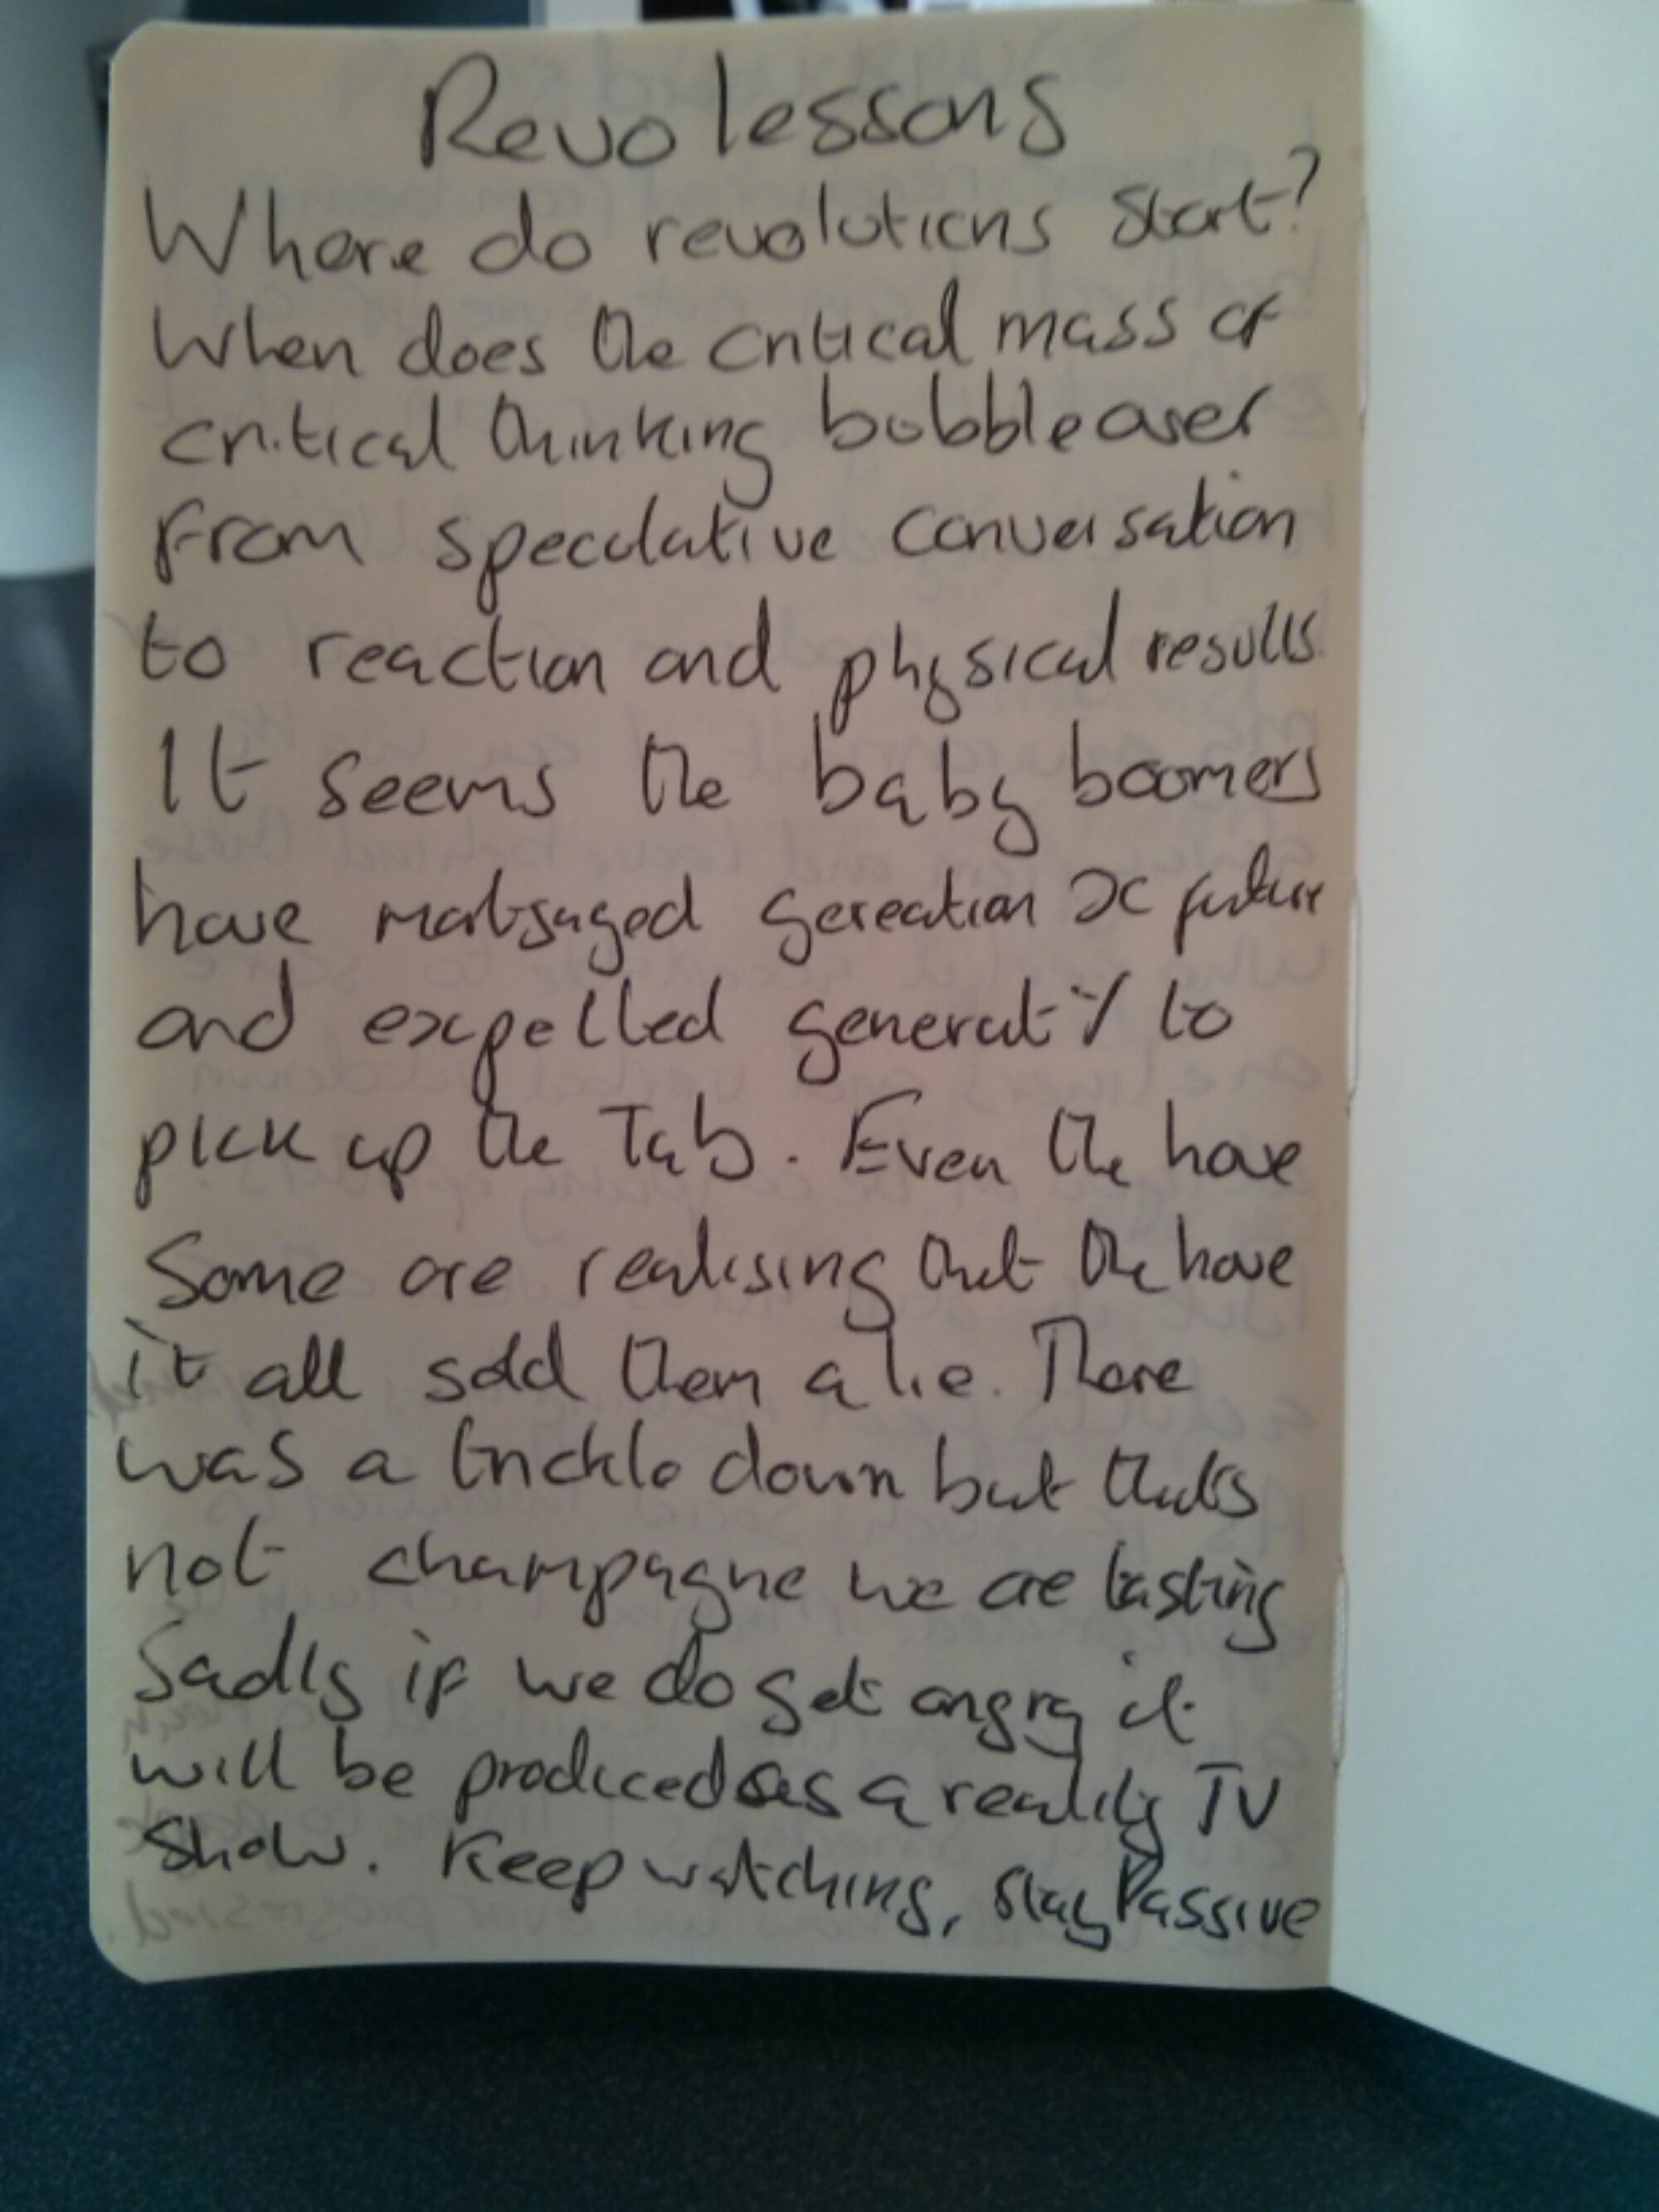 Revo lessons
Where do revolutions start?
When does the critical mass of
critical thinking bubble over
From speculative conversation
to reaction and physical results
It seems the baby boomers
have matsgaged gereation X future
and expelled generat Y to
pick up the Tab. Even the have
Some are realising that the have
it all sold them a lie. There
was a trickle down but thats
not champagne we are tasting
Sadly if we do get angry it
will be produced as a reality TV
Show. Keep watching, stay Passive